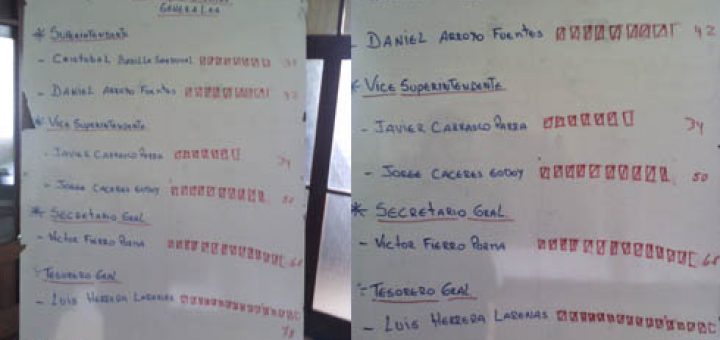 GENERALES
* Superintendente
- Cristobal
- Daniel Arroyo Fuentes 42
* Vice Superintendente
- Javier Carrasco Parra 34
- Jorge Caceres Godoy 50
* Secretario Gral
- Victor Fierro
Tesorero Gral
- Luis Herrera Larenas
78
- Daniel Arroyo Fuentes 42
Vice Superintendente
- Javier Carrasco Parra 34
- Jorge Caceres Godoy 50
* Secretario Gral.
- Victor Fierro
Tesorero Gral
- Luis Herrera Larenas